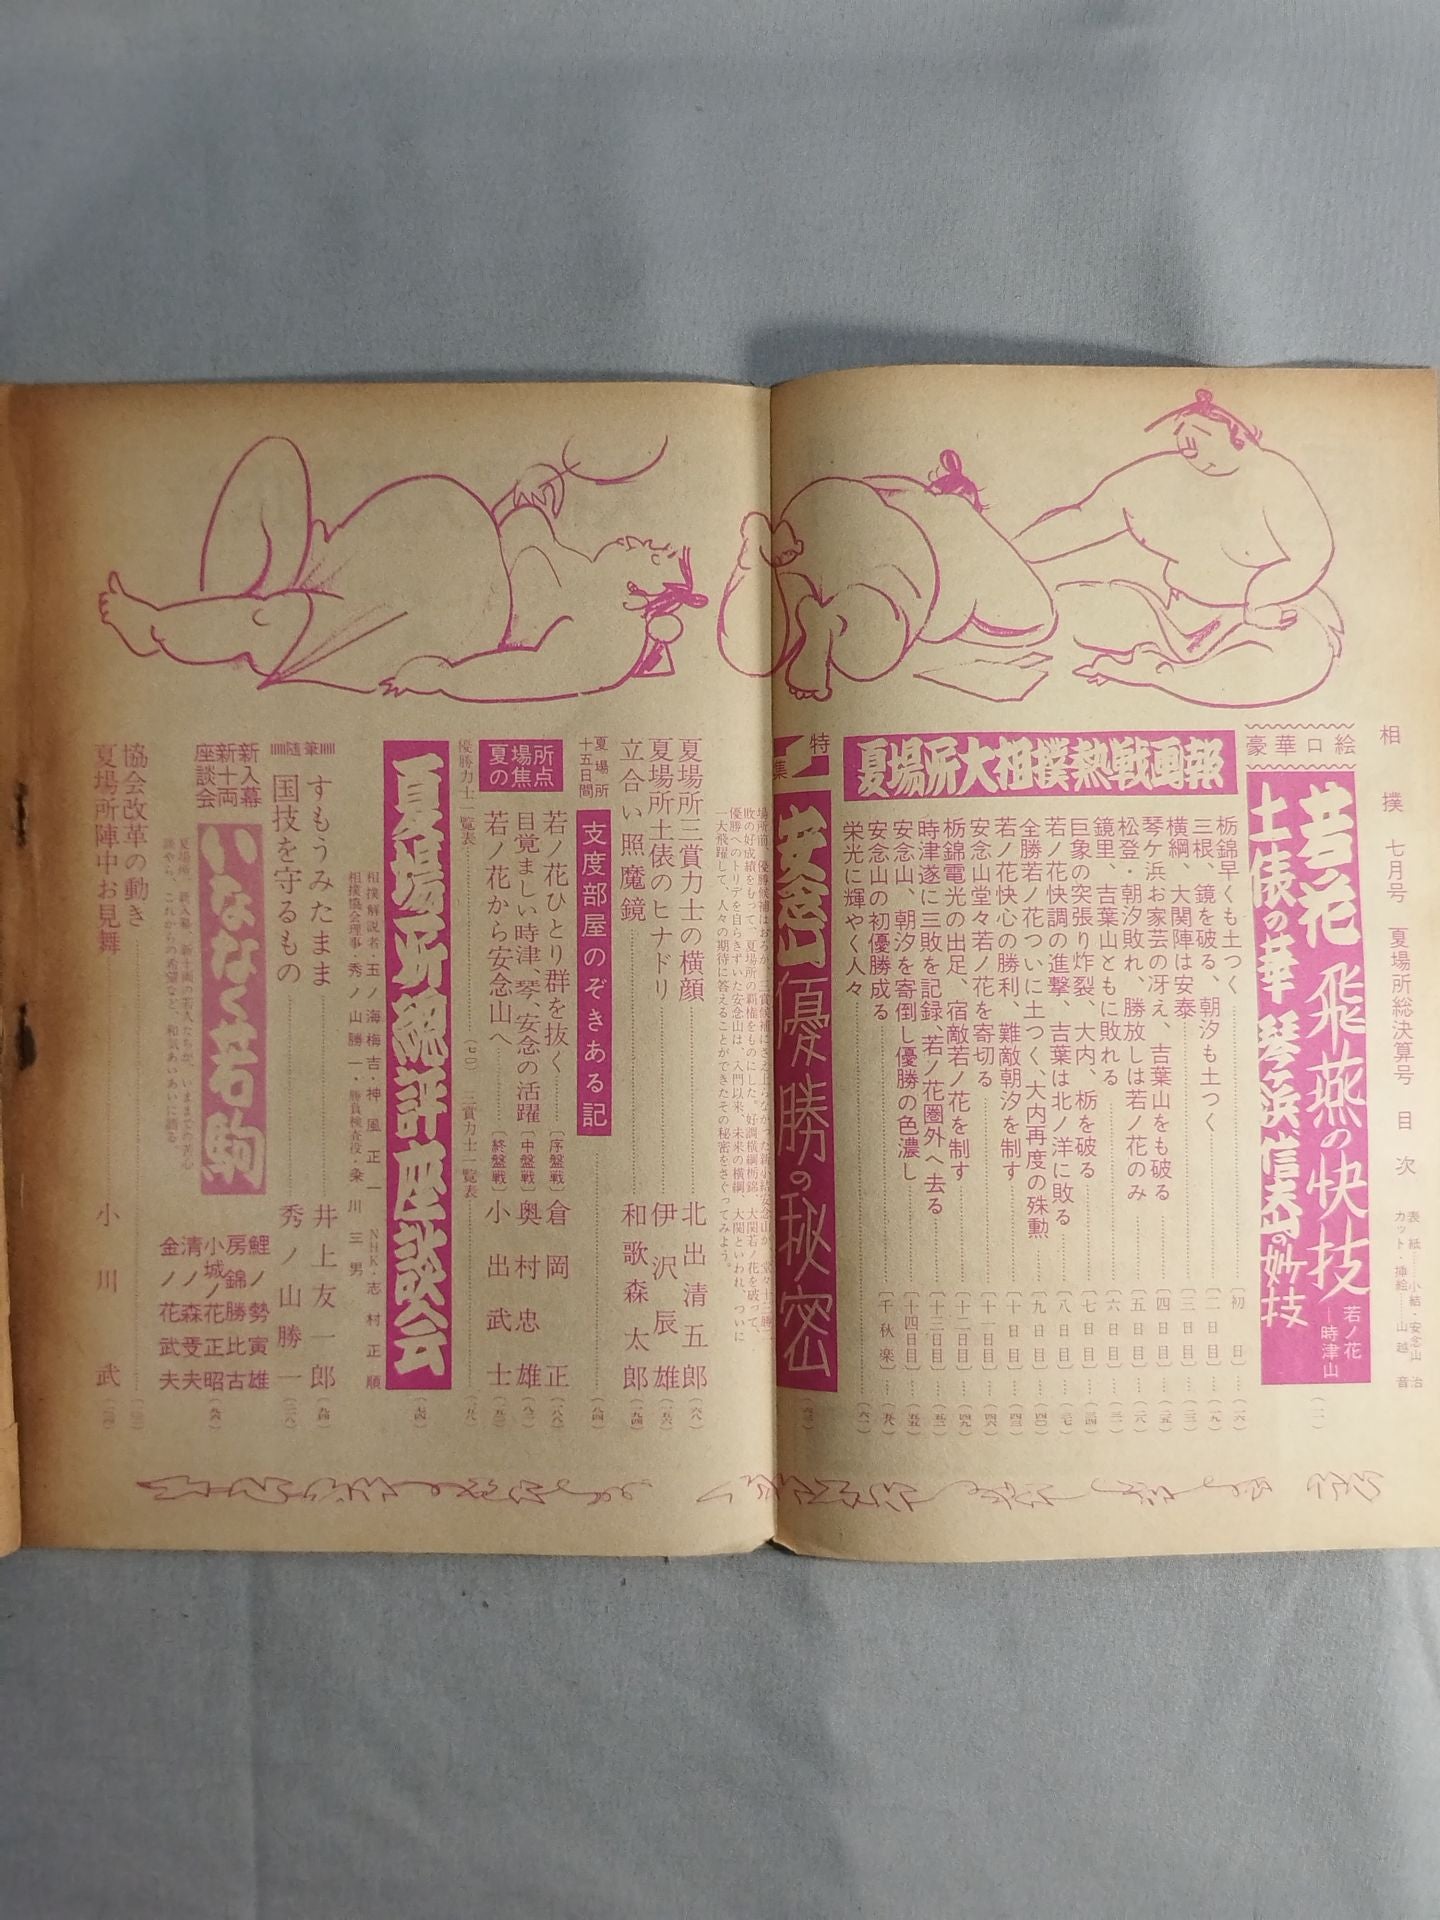 相撲 七月号 夏場所総決算号 目次
表紙……小結・安念山 治
カット・挿絵……山越 音
豪華口絵
若ノ花 飛燕の快技 若ノ花―時津山
土俵の華 琴ヶ浜 信夫山の妙技
(一一)
夏場所大相撲熱戦画報
栃錦早くも土つく……〔初日〕……(一六)
三根、鏡を破る、朝汐も土つく……〔二日目〕……(一九)
横綱、大関陣は安泰……〔三日目〕……(二二)
琴ケ浜お家芸の冴え、吉葉山をも破る……〔四日目〕……(二五)
松登・朝汐敗れ、勝放しは若ノ花のみ……〔五日目〕……(二八)
鏡里、吉葉山ともに敗れる……〔六日目〕……(三一)
巨象の突張り炸裂、大内、栃を破る……〔七日目〕……(三四)
若ノ花快調の進撃、吉葉は北ノ洋に敗る……〔八日目〕……(三七)
全勝若ノ花ついに土つく、大内再度の殊勲……〔九日目〕……(四〇)
若ノ花快心の勝利、難敵朝汐を制す……〔十日目〕……(四三)
安念山堂々若ノ花を寄切る……〔十一日目〕……(四六)
栃錦電光の出足、宿敵若ノ花を制す……〔十二日目〕……(四九)
時津遂に三敗を記録、若ノ花圏外へ去る……〔十三日目〕……(五二)
安念山、朝汐を寄倒し優勝の色濃し……〔十四日目〕……(五五)
安念山の初優勝成る……〔千秋楽〕……(五八)
栄光に輝やく人々……(六一)
特集
安念山 優勝の秘密
場所前、優勝候補はおろか、三賞候補にさえ上らなかった新小結安念山が、堂々十三勝二
敗の好成績をもって、夏場所の覇権をものにした。好調横綱栃錦、大関若ノ花を破って、
優勝へのトリデを自らきずいた安念山は、入門以来、未来の横綱、大関といわれ、ついに
一大飛躍して、人々の期待に答えることができたその秘密をさぐってみよう。
夏場所三賞力士の横顔……北出清五郎(六八)
夏場所土俵のヒナドリ……伊沢辰雄(一五六)
立合い照魔鏡……和歌森太郎(一九四)
夏場所十五日間
支度部屋のぞきある記……(八四)
夏場所の焦点
若ノ花ひとり群を抜く……〔序盤戦〕倉岡正(八八)
目覚ましい時津、琴、安念の活躍〔中盤戦〕奥村忠雄(八二)
若ノ花から安念山へ……〔終盤戦〕小出武士
優勝力士一覧表……三賞力士一覧表……
夏場所総評座談会(七四)
相撲解説者・玉ノ海梅吉・神風正一 NHK・志村正順
相撲協会理事・秀ノ山勝一・勝負検査役・粂川三男
随筆
すもうみたまま……井上友一郎(九四)
国技を守るもの……秀ノ山勝一(三八)
新入幕
新十両
座談会
いななく若駒
夏場所、新入幕、新十両の若人たちが、いままでの苦心
談やら、これからの希望など、和気あいあいに語る。
鯉ノ勢寅雄
房錦勝比古
小城ノ花正昭
清ノ森受夫
金ノ花武夫
協会改革の動き……
夏場所陣中お見舞……小川武